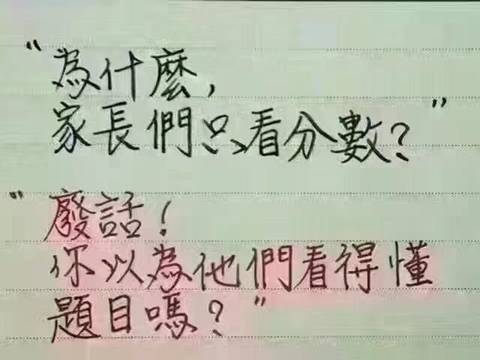 “為什麼,
家長們只看分數？”
“廢話！
你以為他們看得懂
題目嗎？”